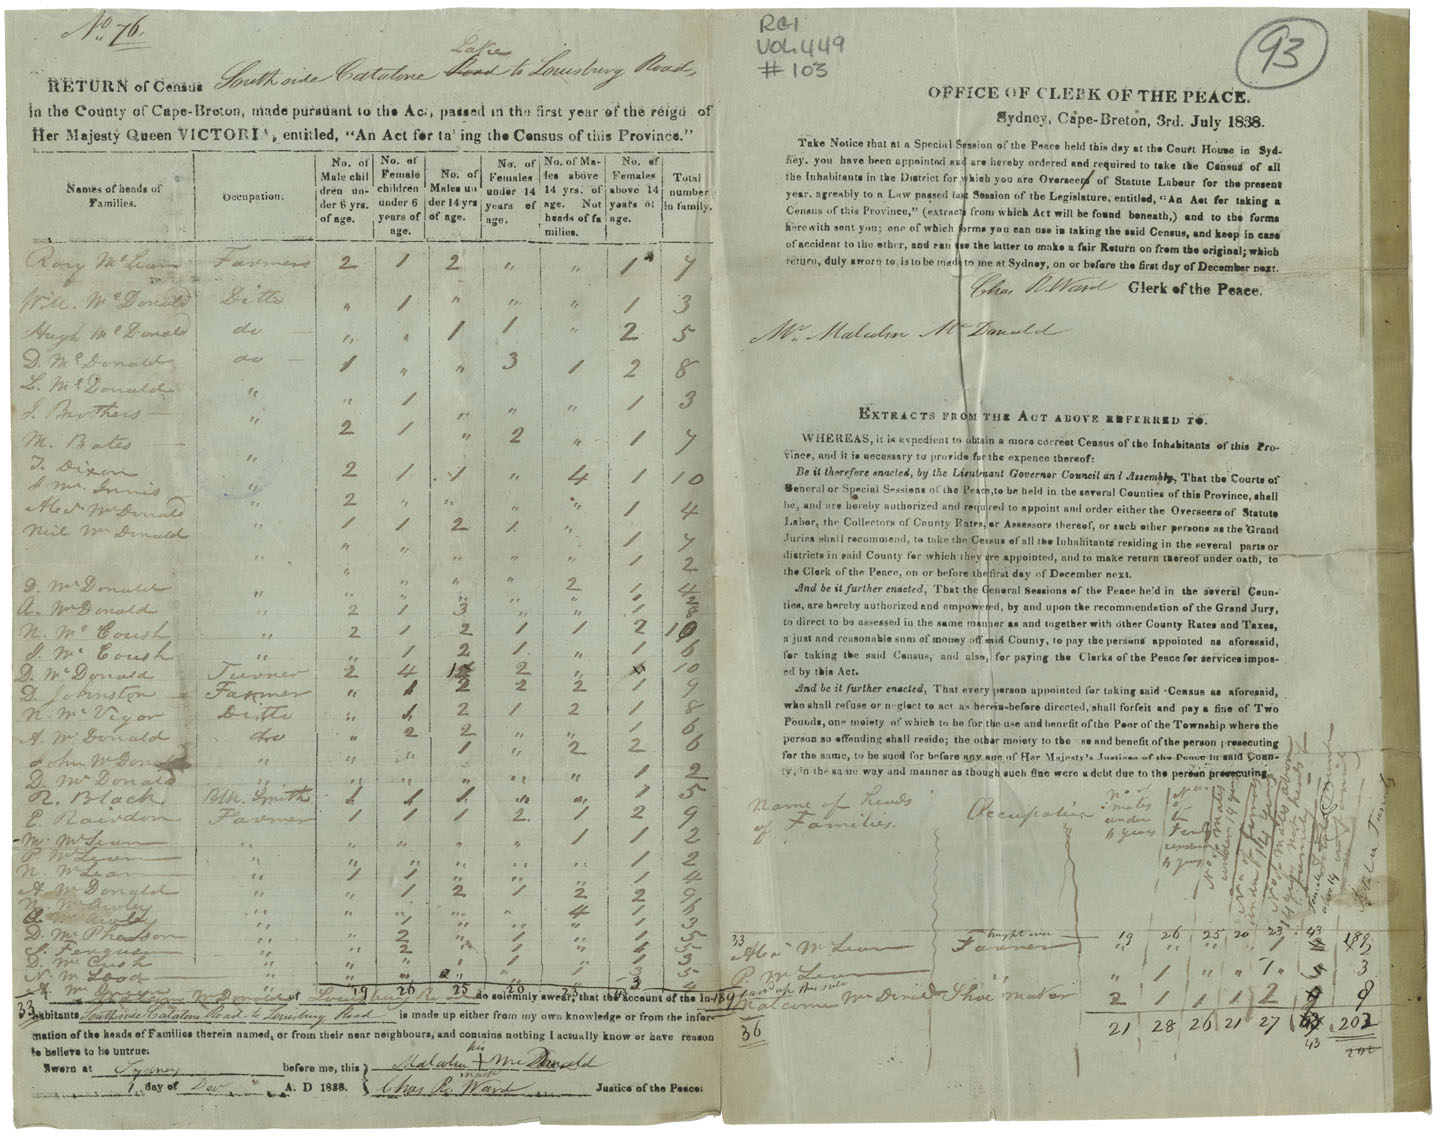 No. 76.
RETURN of Census South side Catalone Lake Road to Louisburg Road,
in the County of Cape-Breton, made pursuant to the Act, passed in the first year of the reign of
Her Majesty Queen VICTORIA, entitled, “An Act for taking the Census of this Province.”
Names of heads of Families. Occupation. No. of Male chil dren un- der 6 yrs. of age. No. of Female children under 6 years of age. No. of Males un der 14 yrs of age. No. of Females under 14 years of age. No. of Ma- les above 14 yrs. of age. Not heads of fa milies. No. of Females above 14 years of age. Total number in family.
Rory McLean Farmers 2 1 2 " " 1 7
Will. McDonald Ditto " 1 " " " 1 3
Hugh McDonald do " " 1 1 " 2 5
D. McDonald do 1 " " 3 1 2 8
L. McDonald " " 1 " " " 1 3
J. Brothers " 2 1 " 2 " 1 7
M. Bates "
T. Dixon " 2 1 1 " 4 1 10
J McInnis " 2 " " " " 1 4
Alexr McDonald
Neil McDonald " 1 1 2 1 " 1 7
" " " " " 1 2
D. McDonald " " " " " 2 1 4
A. McDonald " 2 1 3 " " 1 8
N. McCoush " 2 1 2 1 1 2 10
J. McCoush " " 1 2 1 " 1 6
D. McDonald Turner 2 4 1 2 " 10
D. Johnston Farmer " 1 2 2 2 1 9
N. McVigor Ditto " 1 2 1 2 1 8
A. McDonald do " 2 2 " " 1 6
John McDonald " " " 1 " 2 2 6
D. McDonald " " " " " " 1 2
R. Black Blk. Smith 1 1 1 " " 1 5
E. Rawdon Farmer 1 1 1 2 1 2 9
M. McLean " " " " " 1 1 2
P McLean " " " " " " 1 2
N. McLean " 1 1 " " " 1 4
A McDonald " " 1 2 1 2 2 9
N. McAwley " " " " " 4 1 6
A. McAwley " " 1 " " " 1 3
D. McPherson " " 2 " 1 " 1 5
J. Ferguson " " 2 " 1 " 1 5
D. McCush
N. McLeod
19 26 25 20 43 189
33
McDonald of Louisburg Road do solemnly swear, that the account of the In-
habitants Southside Catalone Road to Louisburg Road is made up either from my own knowledge or from the infor-
mation of the heads of Families therein named, or from their near neighbours, and contains nothing I actually know or have reason
to believe to be untrue.
Sworn at Sydney before me, this Malcolm his + mark McDonald
1 day of Decr. A. D 1838. Chas R. Ward Justice of the Peace.
RG1
VOL. 449
# 103
93
OFFICE OF CLERK OF THE PEACE.
Sydney, Cape-Breton, 3rd. July 1838.
Take Notice that at a Special Session of the Peace held this day at the Court House in Syd-
ney, you have been appointed and are hereby ordered and required to take the Census of all
the Inhabitants in the District for which you are Overseers of Statute Labour for the present
year, agreably to a Law passed last Session of the Legislature, entitled, “An Act for taking a
Census of this Province,” (extracts from which Act will be found beneath,) and to the forms
herewith sent you; one of which forms you can use in taking the said Census, and keep in case
of accident to the other, and can use the latter to make a fair Return on from the original; which
return, duly sworn to, is to be made to me at Sydney, on or before the first day of December next.
Chas R. Ward Clerk of the Peace.
Mr. Malcolm McDonald
EXTRACTS FROM THE ACT ABOVE REFERRED TO.
WHEREAS, it is expedient to obtain a more correct Census of the Inhabitants of this Pro-
vince, and it is necessary to provide for the expence thereof:
Be it therefore enacted, by the Lieutenant Governor Council and Assembly, That the Courts of
General or Special Sessions of the Peace, to be held in the several Counties of this Province, shall
be, and are hereby authorized and required to appoint and order either the Overseers of Statute
Labor, the Collectors of County Rates, or Assessors thereof, or such other persons as the Grand
Juries shall recommend, to take the Census of all the Inhabitants residing in the several parts or
districts in said County for which they are appointed, and to make return thereof under oath, to
the Clerk of the Peace, on or before the first day of December next.
And be it further enacted, That the General Sessions of the Peace he'd in the several Coun-
ties, are hereby authorized and empowered, by and upon the recommendation of the Grand Jury,
to direct to be assessed in the same manner as and together with other County Rates and Taxes,
a just and reasonable sum of money off said County, to pay the persons appointed as aforesaid,
for taking the said Census, and also, for paying the Clerks of the Peace for services impos-
ed by this Act.
And be it further enacted, That every person appointed for taking said Census as aforesaid,
who shall refuse or neglect to act as herein-before directed, shall forfeit and pay a fine of Two
Pounds, one moiety of which to be for the use and benefit of the Poor of the Township where the
person so offending shall reside; the other moiety to the use and benefit of the person prosecuting
for the same, to be sued for before any one of Her Majesty's Justices of the Peace in said Coun-
ty, in the same way and manner as though such fine were a debt due to the person prosecuting.
Name of heads of Families. Occupation No of males under 6 years No of Fem under 6 years No of males under 14 years No of Females under 14 years No of males above 14 years not heads of family
33 brought over 19 26 25 20 23 43 189
Alexr McLean Farmer " " " " 1 2
P McLean " " 1 " 1 " 3
Malcome McDonald Shoe maker 2 1 1 1 2 8
36 21 28 26 21 27 43 202
202